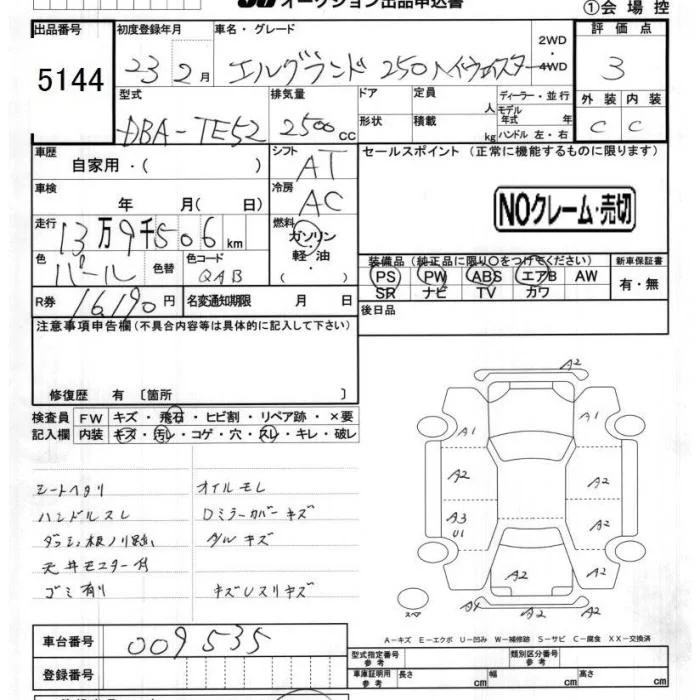 オークション出品申込書
①会場控
出品番号
5144
初度登録年月
23 2月
車名・グレード
エルグランド 250ハイウェイスター
2WD
・
4WD
評価点
3
外装 内装
C C
型式
DBA-TE52
排気量
2500cc
ドア
形状
定員 人
積載 kg
ディーラー・並行
モデル年式 年
ハンドル 左・右
車歴
自家用・( )
シフト
AT
セールスポイント (正常に機能するものに限ります)
NOクレーム・売切
車検
年 月( 日)
冷房
AC
走行
13万9千506km
燃料
ガソリン
・
軽油
( )
色
パール
色替
色コード
QAB
装備品 (純正品に限り○をつけてください)
PS PW ABS エアB AW
SR ナビ TV カワ
新車保証書
有・無
R券
16,190円
名変通知期限 月 日
後日品
注意事項申告欄(不具合内容等は具体的に記入して下さい)
修復歴 有 〔箇所 〕
検査員 FW キズ・飛石・ヒビ割・リペア跡・×要
記入欄 内装 キズ・汚レ・コゲ・穴・スレ・キレ・破レ
シートヘタリ オイルモレ
ハンドルスレ Dミラーカバーキズ
ダッシュ板ノリ跡 ダルキズ
天井モニター付
ゴミ有り キズUスリキズ
A2
A1 A1
A2 A2
A3 A2
U1
A2 A2
A4 A2 A2
スペア
A-キズ E-エクボ U-凹み W-補修跡 S-サビ C-腐食 XX-交換済
車台番号
009535
登録番号
型式指定番号
参考
類別区分番号
参考
車庫証明用
参考
長さ cm 幅 cm 高さ cm